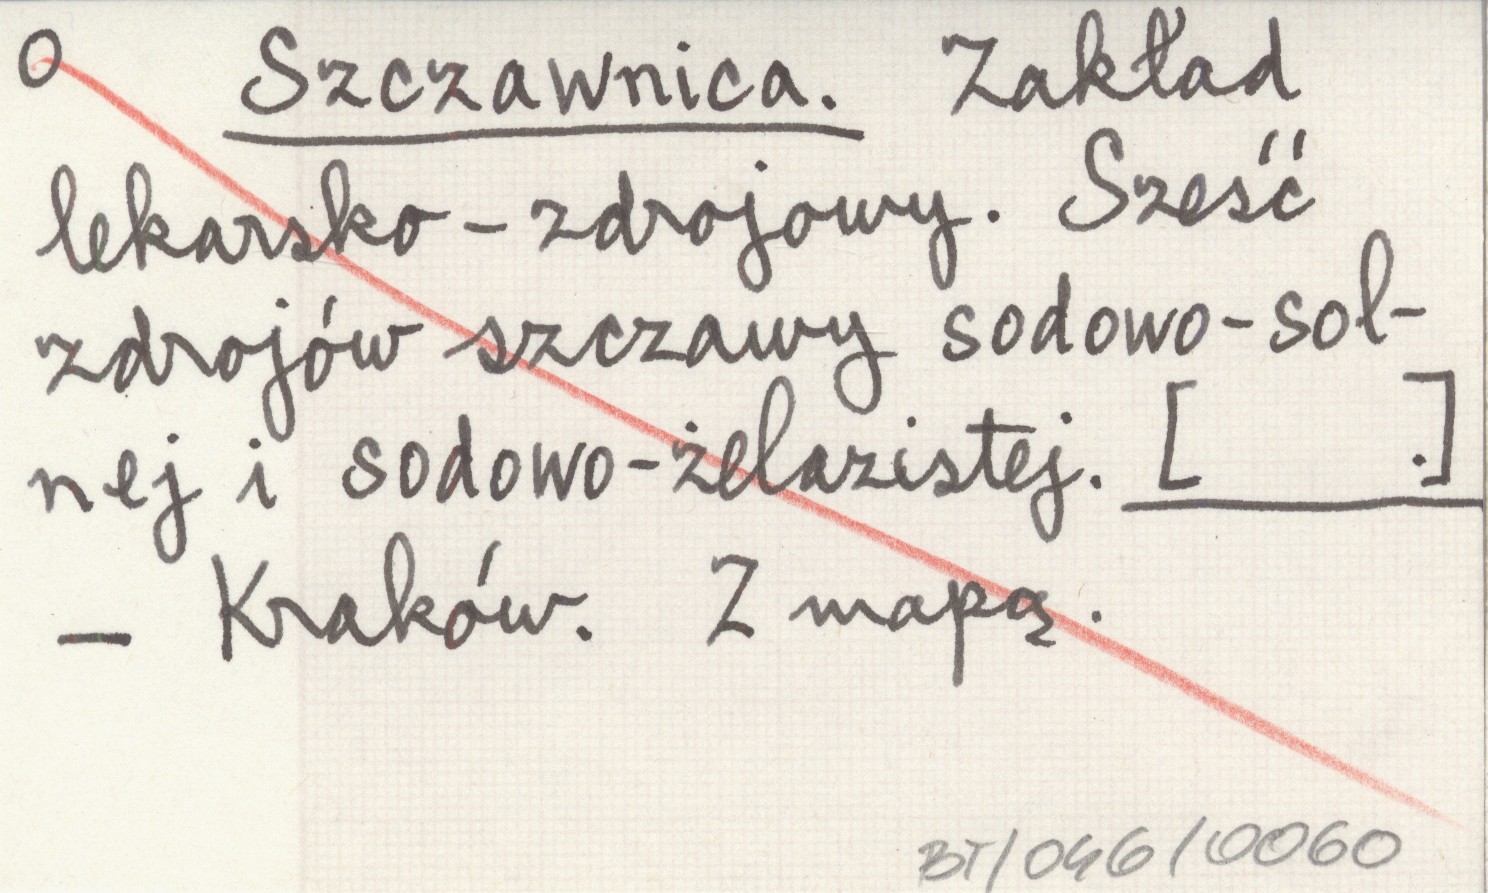 O Szczawnica. Zakład
lekarsko-zdrojowy. Sześć
zdrojów szczawy sodowo-sol-
nej i sodowo-żelazistej. [ .]
— Kraków. Z mapą.
BT/046/0060